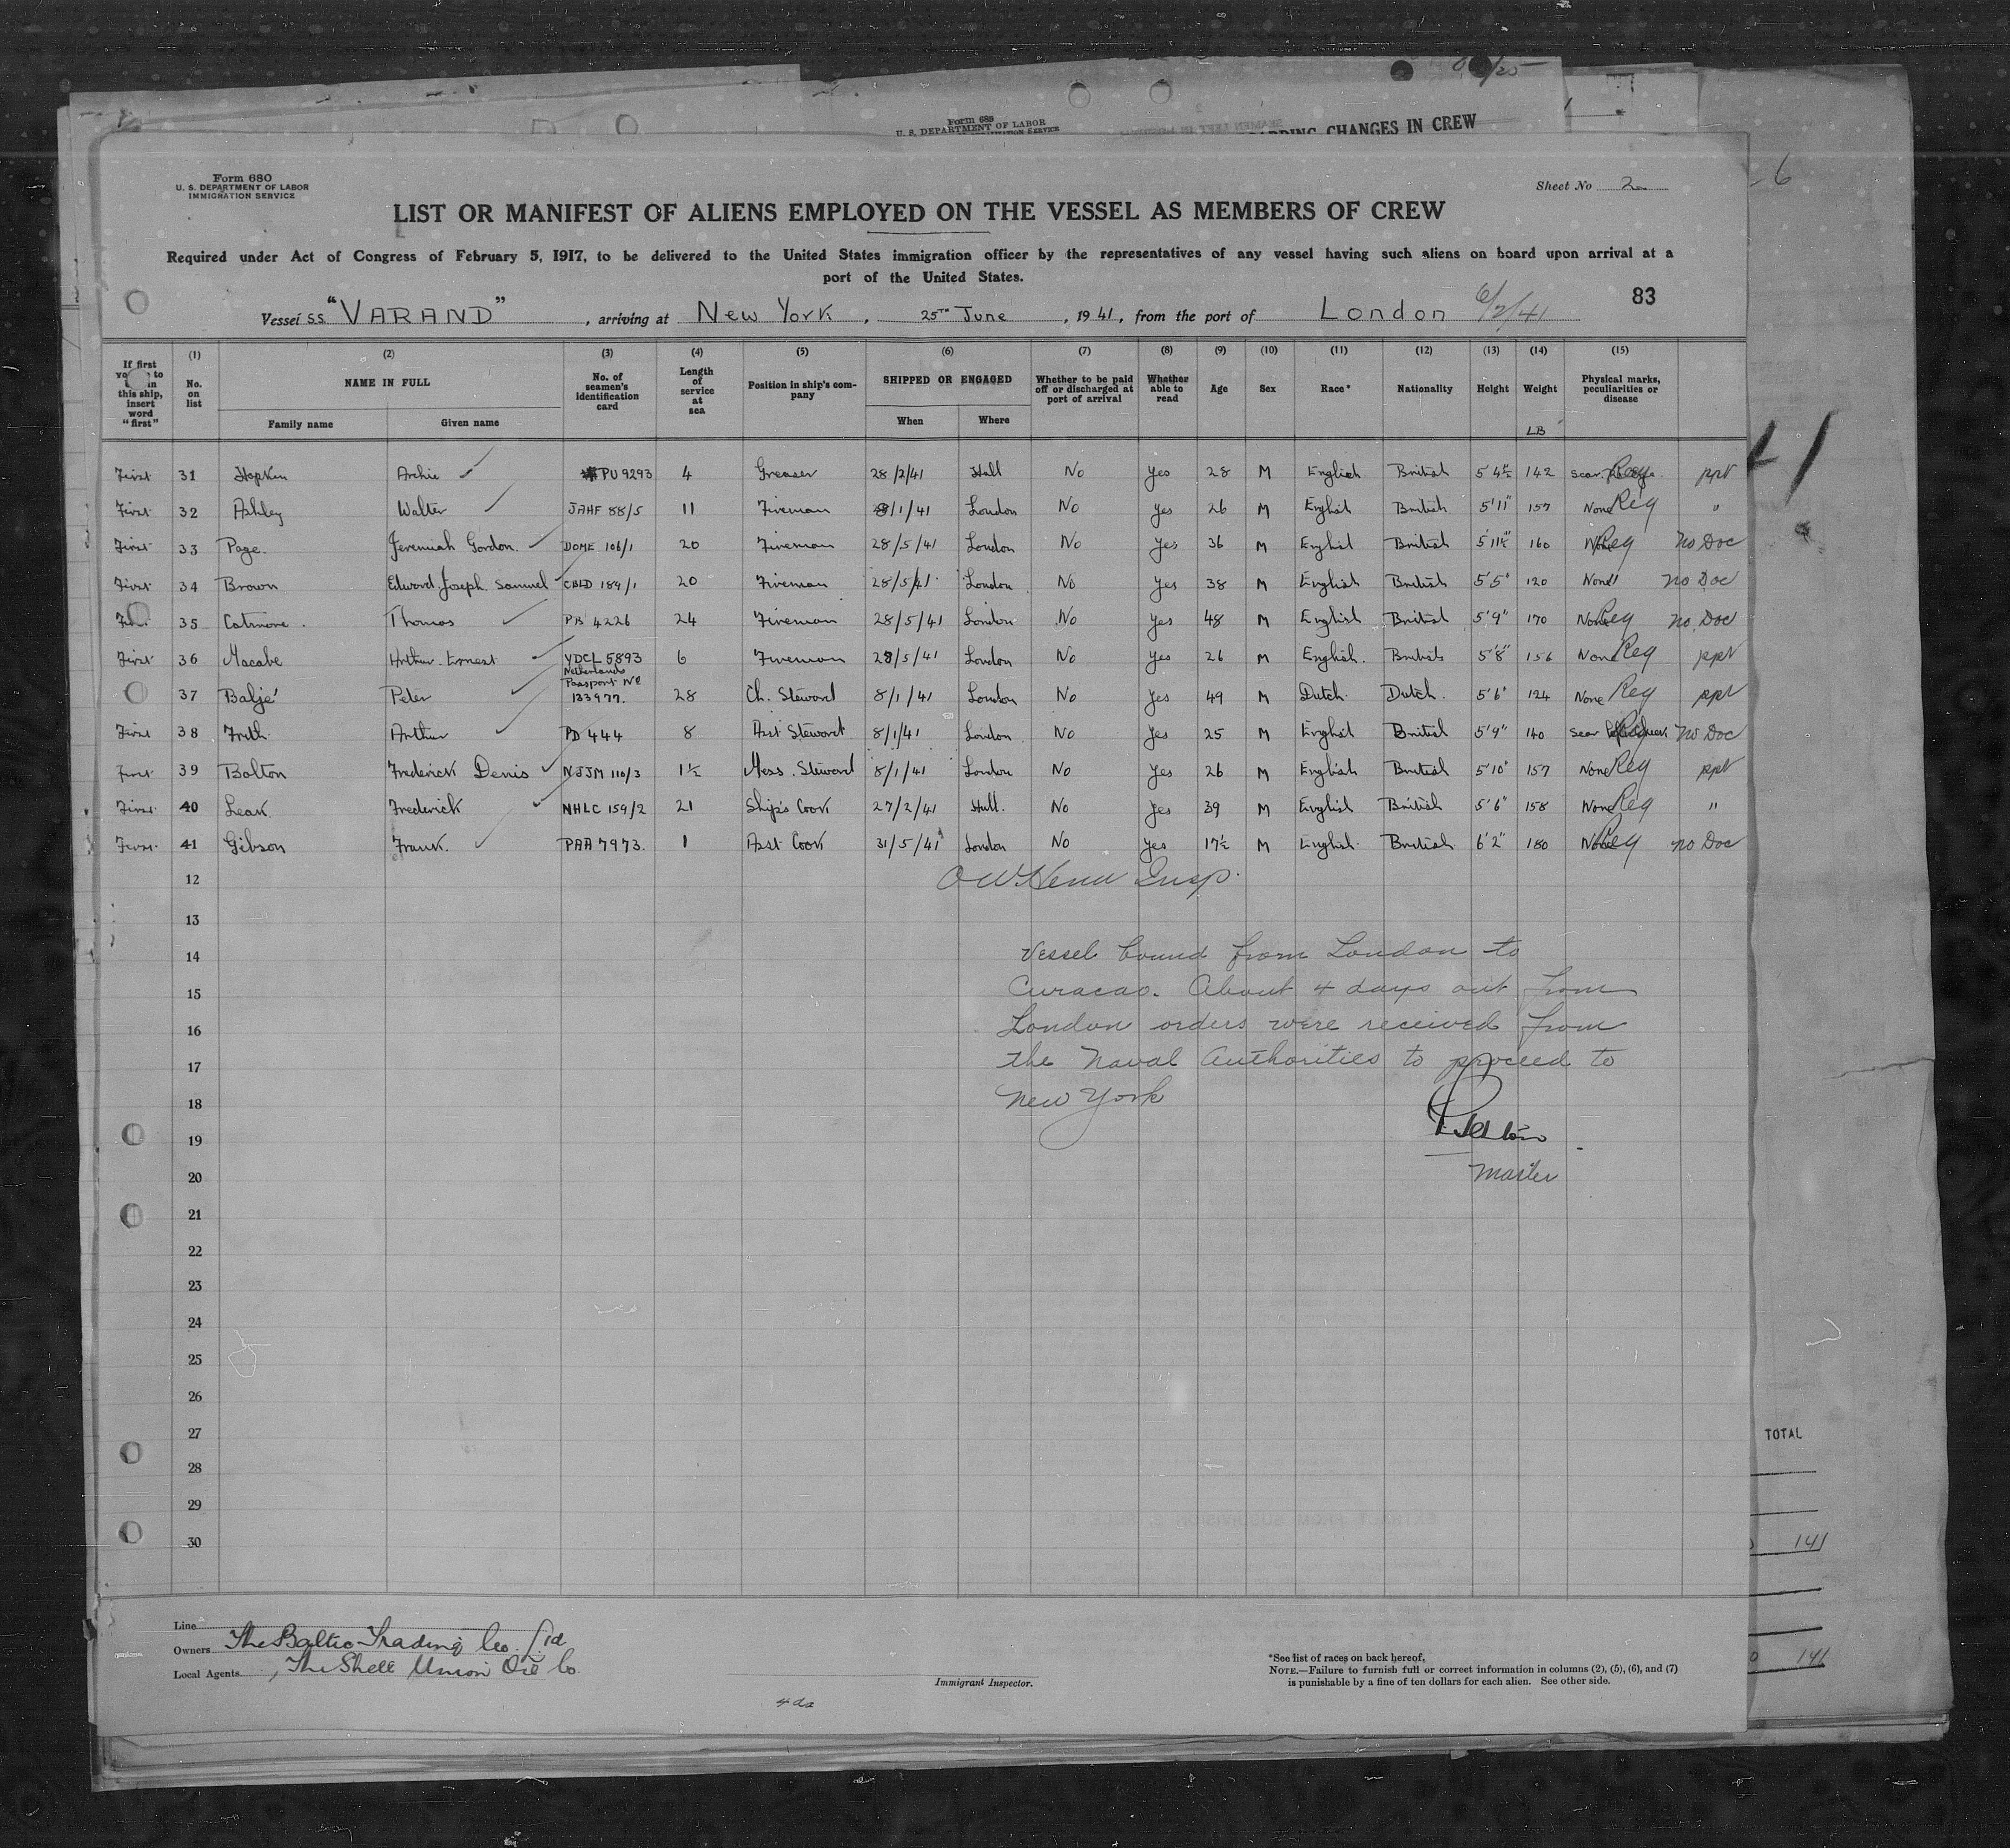 Form 689
U. S. DEPARTMENT OF LABOR
CHANGES IN CREW
Form 680
U. S. DEPARTMENT OF LABOR
IMMIGRATION SERVICE
Sheet No 2
LIST OR MANIFEST OF ALIENS EMPLOYED ON THE VESSEL AS MEMBERS OF CREW
Required under Act of Congress of February 5, 1917, to be delivered to the United States immigration officer by the representatives of any vessel having such aliens on board upon arrival at a
port of the United States.
83
Vessel S.S. "VARAND", arriving at New York, 25TH June, 1941, from the port of London
(1) (2) (3) (4) (5) (6) (7) (8) (9) (10) (11) (12) (13) (14) (15)
If first
this ship,
insert
word
"first"
No.
on
list
NAME IN FULL
Family name Given name
No. of
seamen's
identification
card
Length
of
service
at
sea
Position in ship's com-
pany
SHIPPED OR ENGAGED
When Where
Whether to be paid
off or discharged at
port of arrival
Whether
able to
read
Age Sex Race* Nationality Height Weight
LB
Physical marks,
peculiarities or
disease
First 31 Hopkin Archie PU 9293 4 Greaser 28/2/41 Hull No Yes 28 M English British 5'4½" 142 scar ppt
First 32 Ashley Walter JAHF 88/5 11 Fireman 8/1/41 London No Yes 26 M English British 5'11" 157 None Reg "
First 33 Page Jeremiah Gordon. DOME 106/1 20 Fireman 28/5/41 London No Yes 36 M English British 5'11½" 160 None Reg no Doc
First 34 Brown Edward Joseph Samuel CBLD 189/1 20 Fireman 28/5/41 London No Yes 38 M English British 5'5" 120 None " no Doc
First 35 Catmore Thomas PB 4226 24 Fireman 28/5/41 London No Yes 48 M English British 5'9" 170 None Reg no Doc
First 36 Macabe Arthur Ernest YDCL 5893 6 Fireman 28/5/41 London No Yes 26 M English. British 5'8" 156 None Reg ppt
Netherlands
Passport No
37 Baljé Peter 133977. 28 Ch. Steward 8/1/41 London No Yes 49 M Dutch. Dutch. 5'6" 124 None Reg ppt
First 38 Frith Arthur PD 444 8 Asst Steward 8/1/41 London No Yes 25 M English British 5'9" 140 Scar no Doc
First 39 Bolton Frederick Denis NJJM 110/3 1½ Mess. Steward 8/1/41 London No Yes 26 M English British 5'10" 157 None Reg ppt
First 40 Leak Frederick NHLC 159/2 21 Ship's Cook 27/2/41 Hull. No Yes 39 M English British 5'6" 158 None Reg "
First 41 Gibson Frank. PAA 7973. 1 Asst Cook 31/5/41 London No Yes 17½ M English British 6'2" 180 None Reg no Doc
12 Insp.
13
14 Vessel bound from London to
15 Curacao. About 4 days out from
16 London orders were received from
17 the Naval Authorities to proceed to
18 New York
19
20 Master
21
22
23
24
25
26
27
28
29
30
TOTAL
141
141
Line
Owners The Baltic Trading Co. Ltd
Local Agents, The Shell Union Oil Co.
Immigrant Inspector.
*See list of races on back hereof.
NOTE.—Failure to furnish full or correct information in columns (2), (5), (6), and (7)
is punishable by a fine of ten dollars for each alien. See other side.